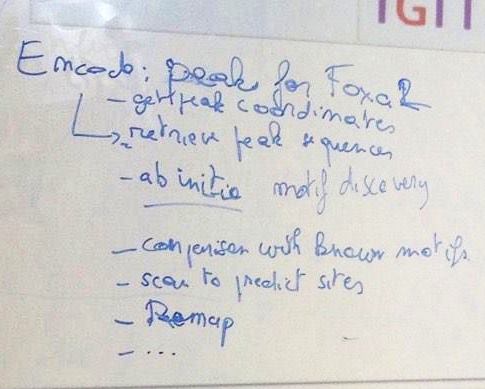 TGIT
Encode: peak for Foxa2
- get peak coordinates
- retrieve peak sequences
- ab initio motif discovery
- comparison with known motifs
- scan to predict sites
- Remap
- ...